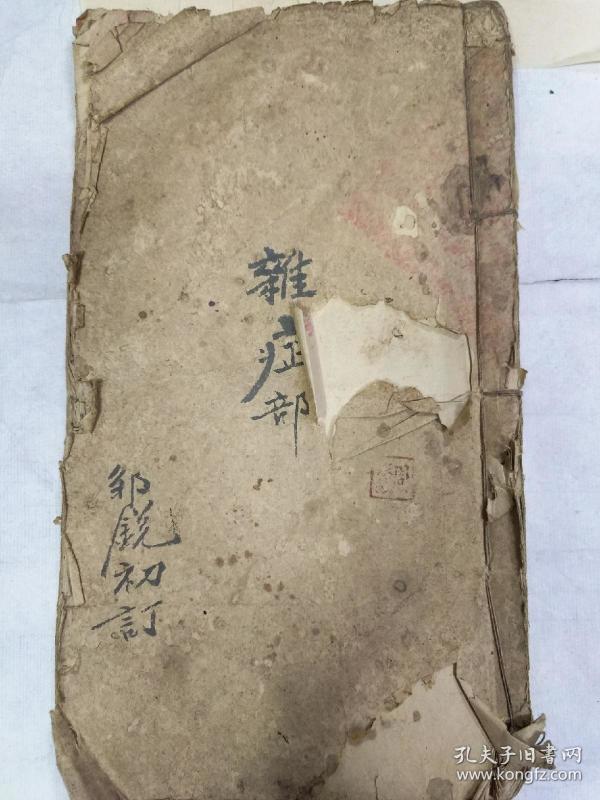 雜症部
邹銳初訂
孔夫子旧书网
www.kongfz.com